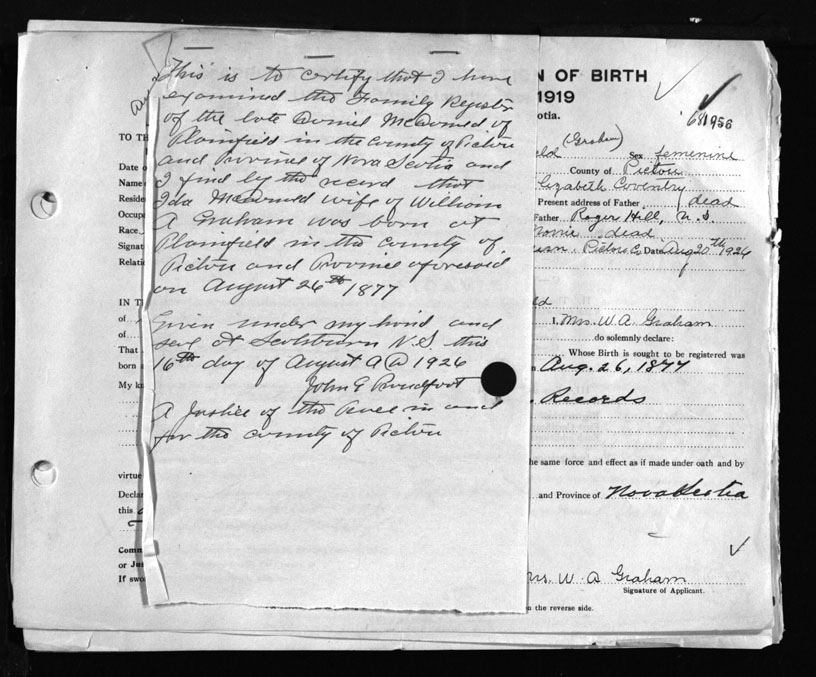 This is to certify that I have
examined the Family Register
of the late Daniel McDonald of
Plainfield in the county of Pictou
and Province of Nova Scotia and
I find by the record that
Ida McDonald wife of William
A Graham was born at
Plainfield in the county of
Pictou and Province aforesaid
on August 26th 1877
Given under my hand and
seal at Scotsburn N.S. this
16th day of August A D 1926
John G Proudfoot
A Justice of the Peace in and
for the county of Pictou
N OF BIRTH
1919
otia.
681956
TO TH
(Graham)
eld Sex femenine
Date o
County of Pictou
Name
lizabeth Coventry
Reside
Present address of Father dead
Occup
Father Roger Hill, N.S.
Race
dead
Signat
Pictou Co Date Aug 20th 1926
Relati
IN T
eld
of
I, Mrs. W. A Graham
of
do solemnly declare:
That
Whose Birth is sought to be registered was
born
Aug. 26, 1877
My k
Records
the same force and effect as if made under oath and by
virtue
Decla
and Province of Nova Scotia
this
Comm
or Ju
If swo
rs. W. A Graham
Signature of Applicant.
n the reverse side.